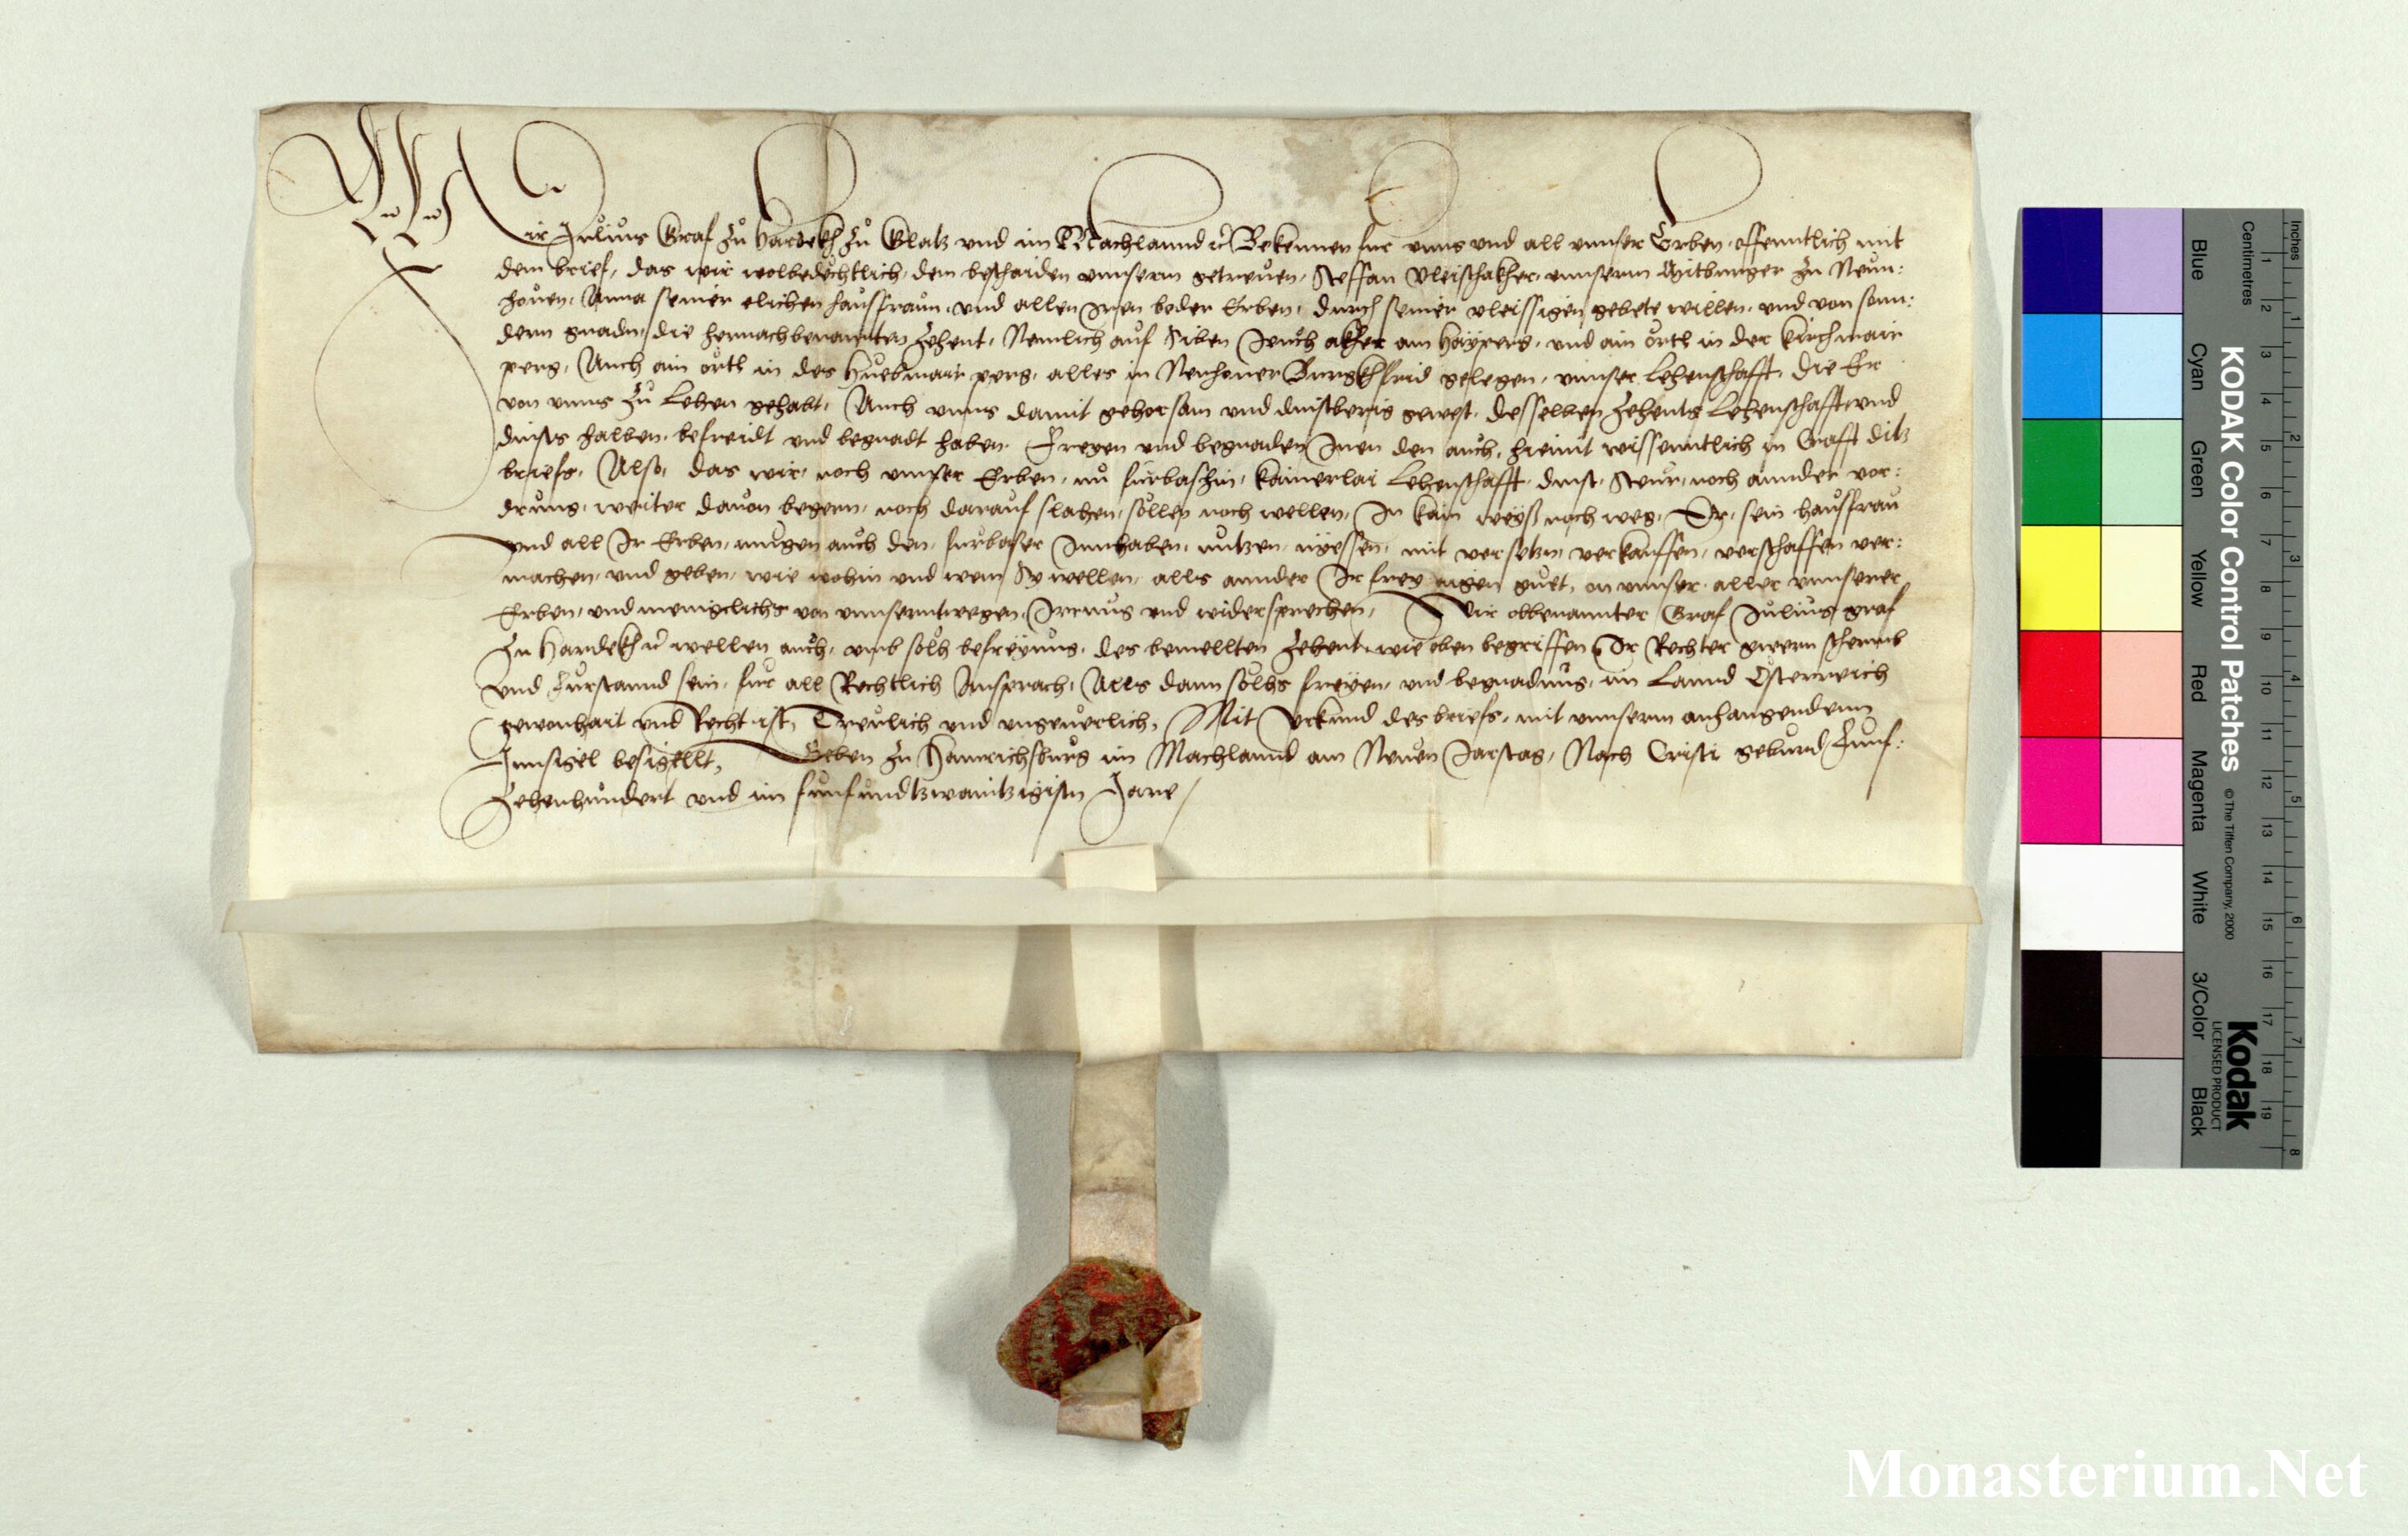 Wir Julius Graf zu Hardekh zu Glatz vnd im Machlannd rc Bekennen fur vnns vnd all vnnser Erben, offenntlich mit
dem brief, das wir wolbedechtlich, dem beschaiden vnnserm getrewen, Steffan Vleischakher, vnnserm Mitburger zu Neun:
houen, Anna seiner elichen hausfraun, vnd allen Iren beder Erben, durch seiner vleissigen gebete willen, vnd von sonn:
dern gnadn, die hernachbenannten Zehent, Nemlich auf Siben Jeuch akher am Haÿperg, vnd ain örtl in der Kirchmair
perg, Auch ain örtl in des Huebmair perg, alles in Neuhouer Burgkhfrid gelegen, vnnser Lehenschafft, die Er
von vnns zu Lehen gehabt, Auch vnns damit gehorsam vnd dinstberig gewest, desselben Zehents Lehenschafft vnd
dinsts halben, befreidt vnd begnadt haben, Freyen vnd begnaden Inen den auch, hiemit wissenntlich in Crafft ditz
briefs, Also, das wir, noch vnnser Erben, nu furbashin, kainerlai Lehenschafft, dinst, Steur, noch annder vor:
drung, weiter dauon begern, noch darauf slahen, sollen noch wellen, In kain weÿs noch weg, Er, sein hausfrau
vnd all Ir Erben, mugen auch den, furbaser Innhaben, nutzen, nÿessen, mit versetzn, verkauffen, verschaffen ver:
machen, vnd geben, wie wohin vnd wem Sy wellen, alls annder Ir frey aigen guet, on vnnser aller vnnserer
Erben, vnd menigclichs von vnnserntwegen, Irrnus vnd widersprechen, Wir obbenannter Graf Julius graf
zu Hardekh rc wellen auch, vmb solh befreÿung, des bemellten Zehent, wie oben begriffen Ir Rechter gwern schermb
vnd Furstannd sein, fur all Rechtlich Ansprach, Alls dann solhs freÿen, vnd begnadung, im Lannd Österreich
gewonhait vnd Recht ist, Treulich vnd vngeuerlich, Mit Vrkund des briefs, mit vnnserm anhangendenn
Innsigel besigellt, Geben zu Hannrichsburg im Machlannd am Neuen Jarstag, Nach Cristi geburd Funf:
Zehenhundert vnd im funfundtzwaintzigistn Jare /
Inches
Centimetres
1 2 3 4 5 6 7 8
1 2 3 4 5 6 7 8 9 10 11 12 13 14 15 16 17 18 19
Blue Cyan Green Yellow Red Magenta White 3/Color Black
KODAK Color Control Patches
© The Tiffen Company, 2000
Kodak
LICENSED PRODUCT
Monasterium.Net